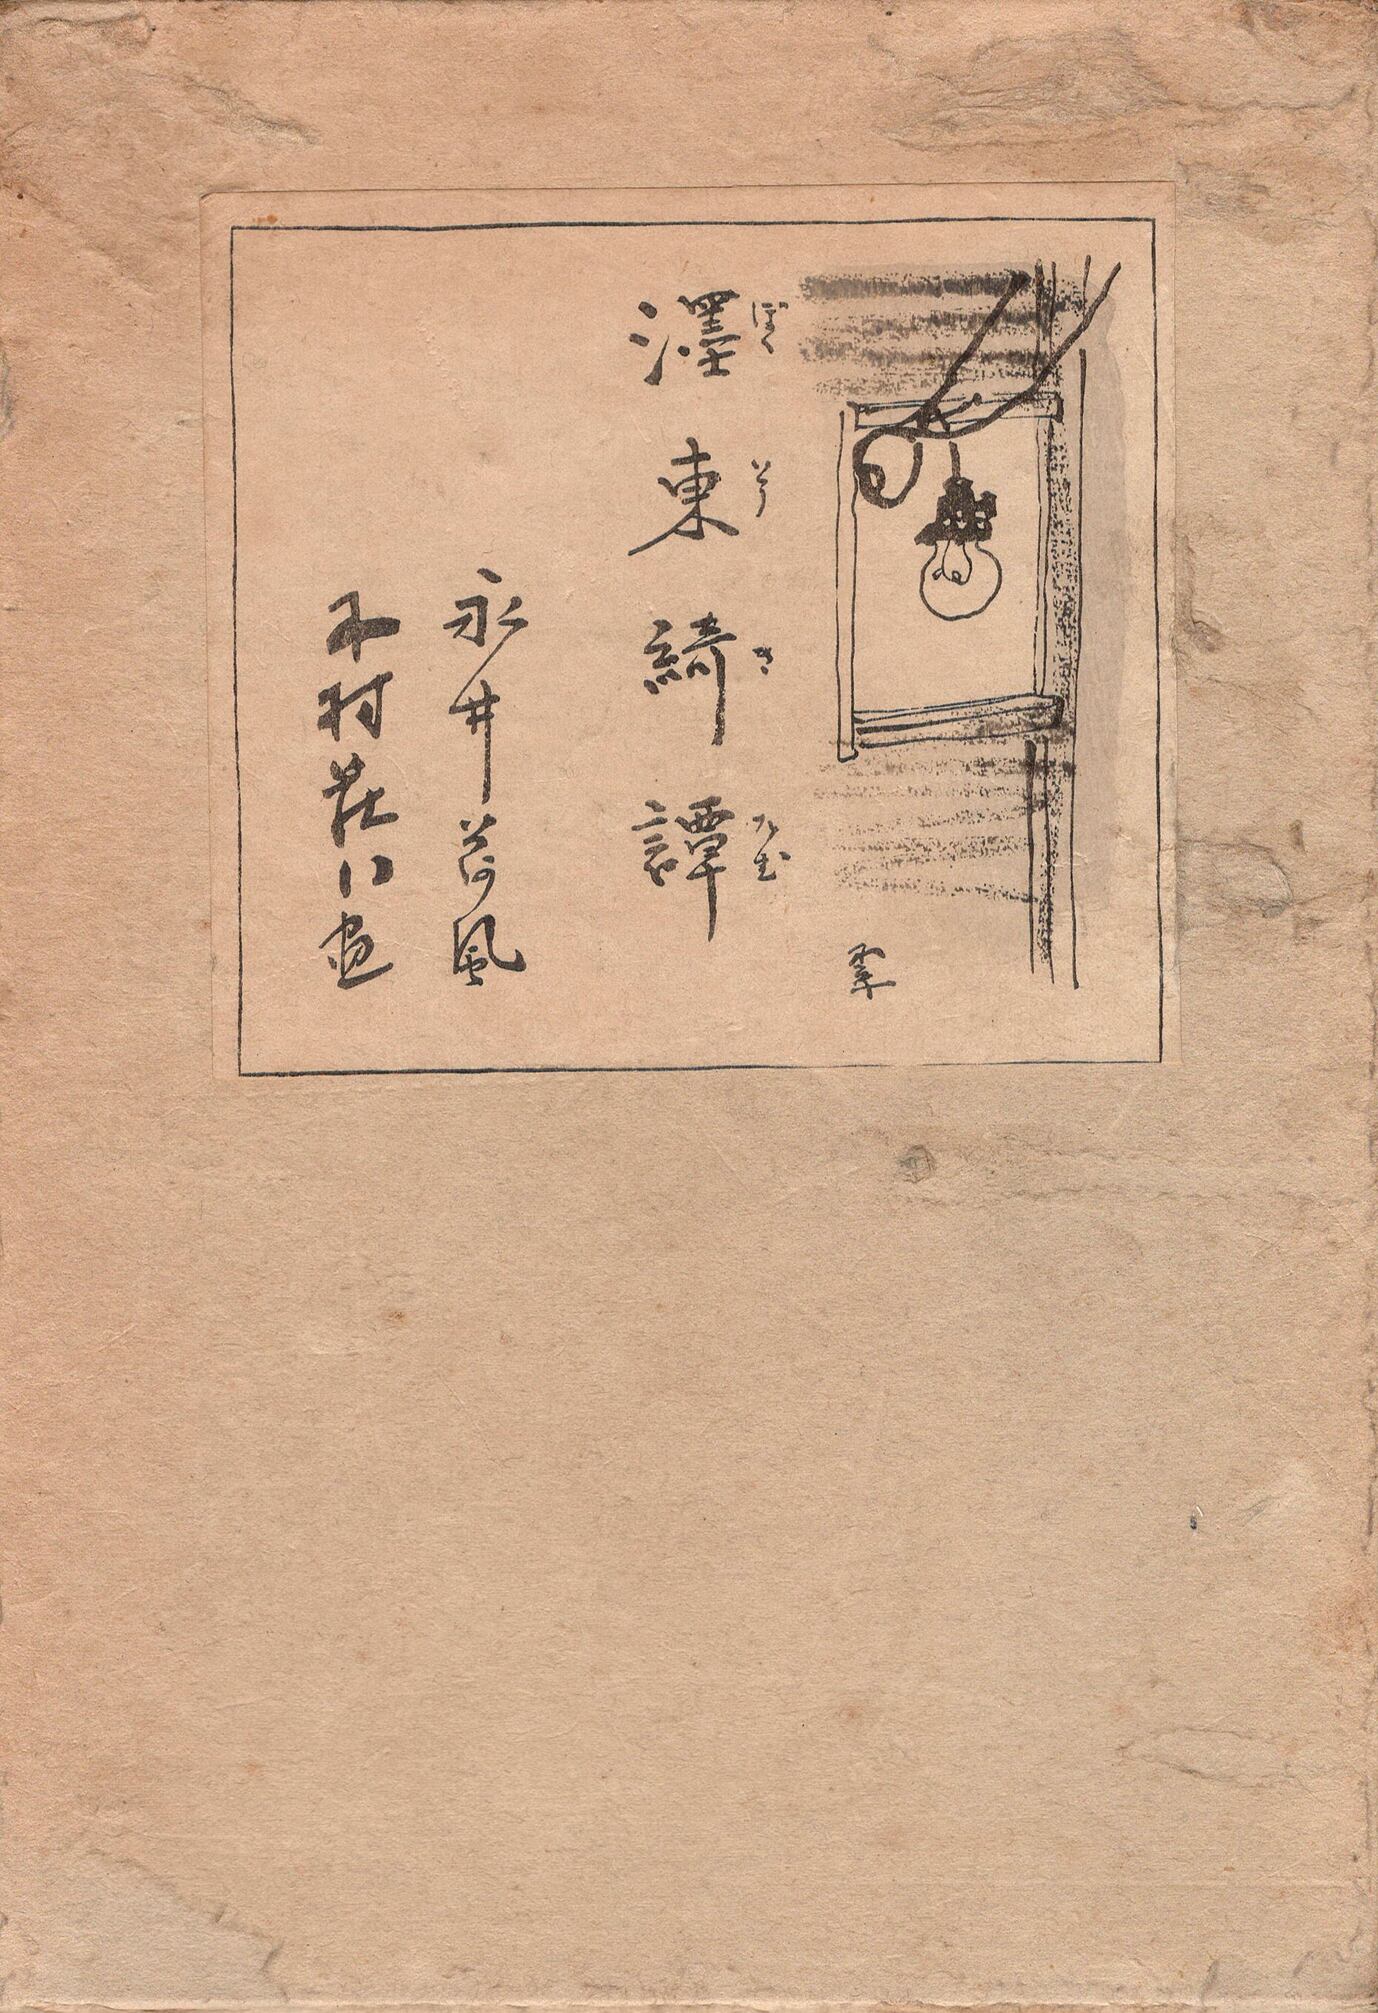 濹東綺譚
ぼくとうきだん
永井荷風
木村荘八画